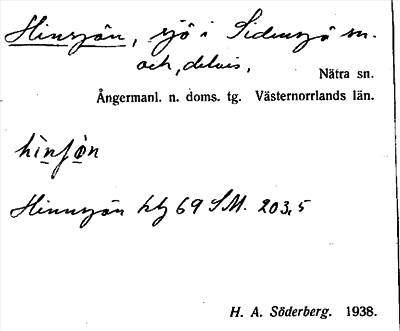 Hinsjön, sjö i Sidensjö sn.
och, delvis,
Nätra sn.
Ångermanl. n. doms. tg. Västernorrlands län.
hìnʃò̱n
Hinnsjön kbl 69 SM. 203,5
H. A. Söderberg. 1938.